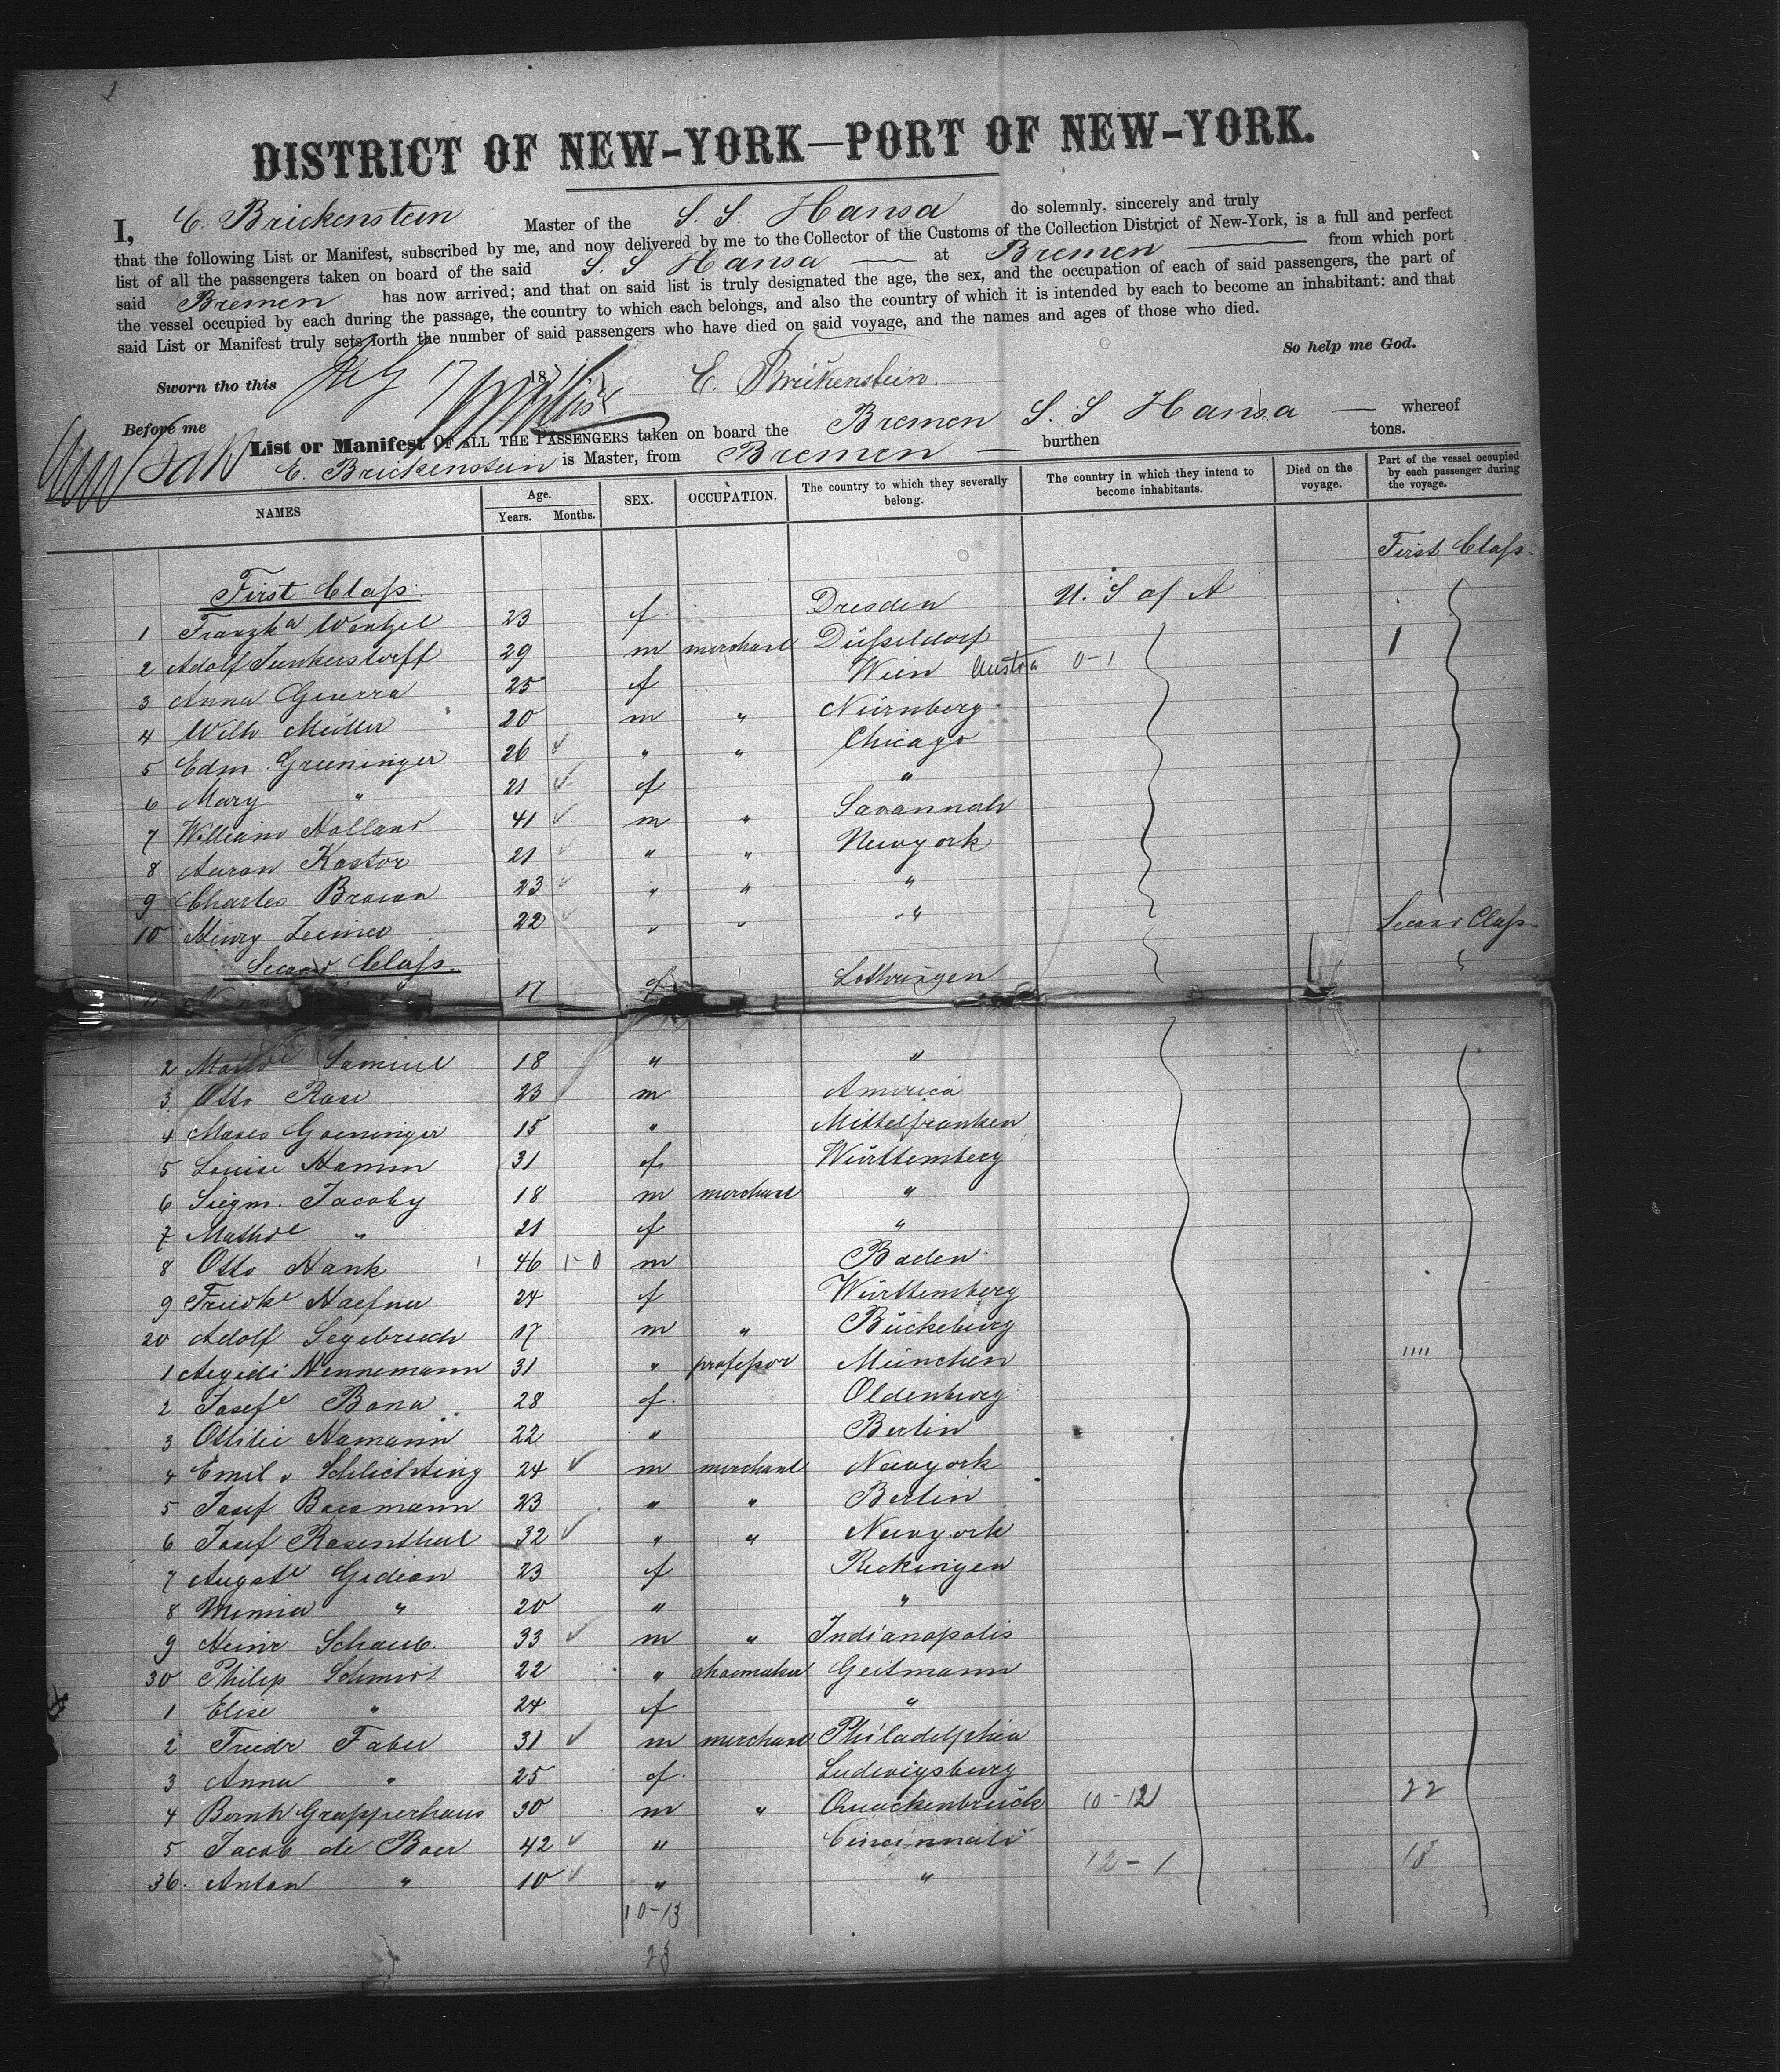 DISTRICT OF NEW-YORK—PORT OF NEW-YORK.
I, C. Brickenstein Master of the S. S. Hansa do solemnly, sincerely and truly
that the following List or Manifest, subscribed by me, and now delivered by me to the Collector of the Customs of the Collection District of New-York, is a full and perfect
list of all the passengers taken on board of the said S. S Hansa at Bremen from which port
said Bremen has now arrived; and that on said list is truly designated the age, the sex, and the occupation of each of said passengers, the part of
the vessel occupied by each during the passage, the country to which each belongs, and also the country of which it is intended by each to become an inhabitant: and that
said List or Manifest truly sets forth the number of said passengers who have died on said voyage, and the names and ages of those who died.
So help me God.
Sworn tho this July 17 187 C. Brickenstein.
Before me
List or Manifest OF ALL THE PASSENGERS taken on board the Bremen S. S Hansa whereof
C. Brickenstein is Master, from Bremen burthen tons.
NAMES Age. Years. Months. SEX. OCCUPATION. The country to which they severally belong. The country in which they intend to become inhabitants. Died on the voyage. Part of the vessel occupied by each passenger during the voyage.
First Class.
First Class.
1 Franzka Wentzel 23 f. Dresden U. S of A
2 Adolf Junkerstorff 29 m merchant Düsseldorf 1
3 Anna Guerra 25 f Wien Austria 0-1
4 Wilh Müller 20 m " Nürnberg
5 Edm. Greeninger 26 " " Chicago
6 Mary " 21 f "
7 William Holland 41 m " Savannah
8 Aaron Kastor 21 " " Newyork
9 Charles Brown 23 " " "
10 Henry 22 " " "
Second Class. Second Class.
17 f Lothringen
2 Samuel 18 " "
3 Otto Rose 23 m America
4 Goeninger 15 " Mittelfranken
5 Louise Hamm 31 f Württemberg
6 Siegm. Jacoby 18 m merchant "
7 Mathde " 21 f "
8 Otto Hank 46 1-0 m Baden
9 Friedke Haefner 24 f Württemberg
20 Adolf Segebruch 17 m " Bückeburg
1 Aegidi Hennemann 31 " professor München
2 Josefe Bona 28 f. Oldenburg
3 Ottilie Hamann 22 " Berlin
4 Emil v Schlichting 24 m merchant Newyork
5 Josef Bausmann 23 " " Berlin
6 Josef Rosenthal 32 " " Newyork
7 Auguste Gideon 23 f
8 Minna " 20 " "
9 Heinr Schaub. 33 m " Indianapolis
30 Philip Schmidt 22 " shoemaker Geitmann
1 Elise " 24 f "
2 Friedr Faber 31 m merchant Philadelphia
3 Anna " 25 f. Ludwigsburg
4 Bernh Grapperhaus 30 m " Quackenbrück 10-12 22
5 Jacob de Boer 42 " Cincinnati
36. Anton " 10 " " 12-1 18
10-13